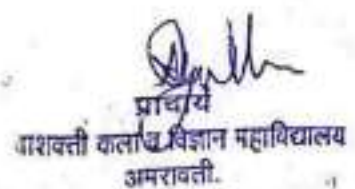 प्राचार्य
कला व विज्ञान महाविद्यालय
अमरावती.